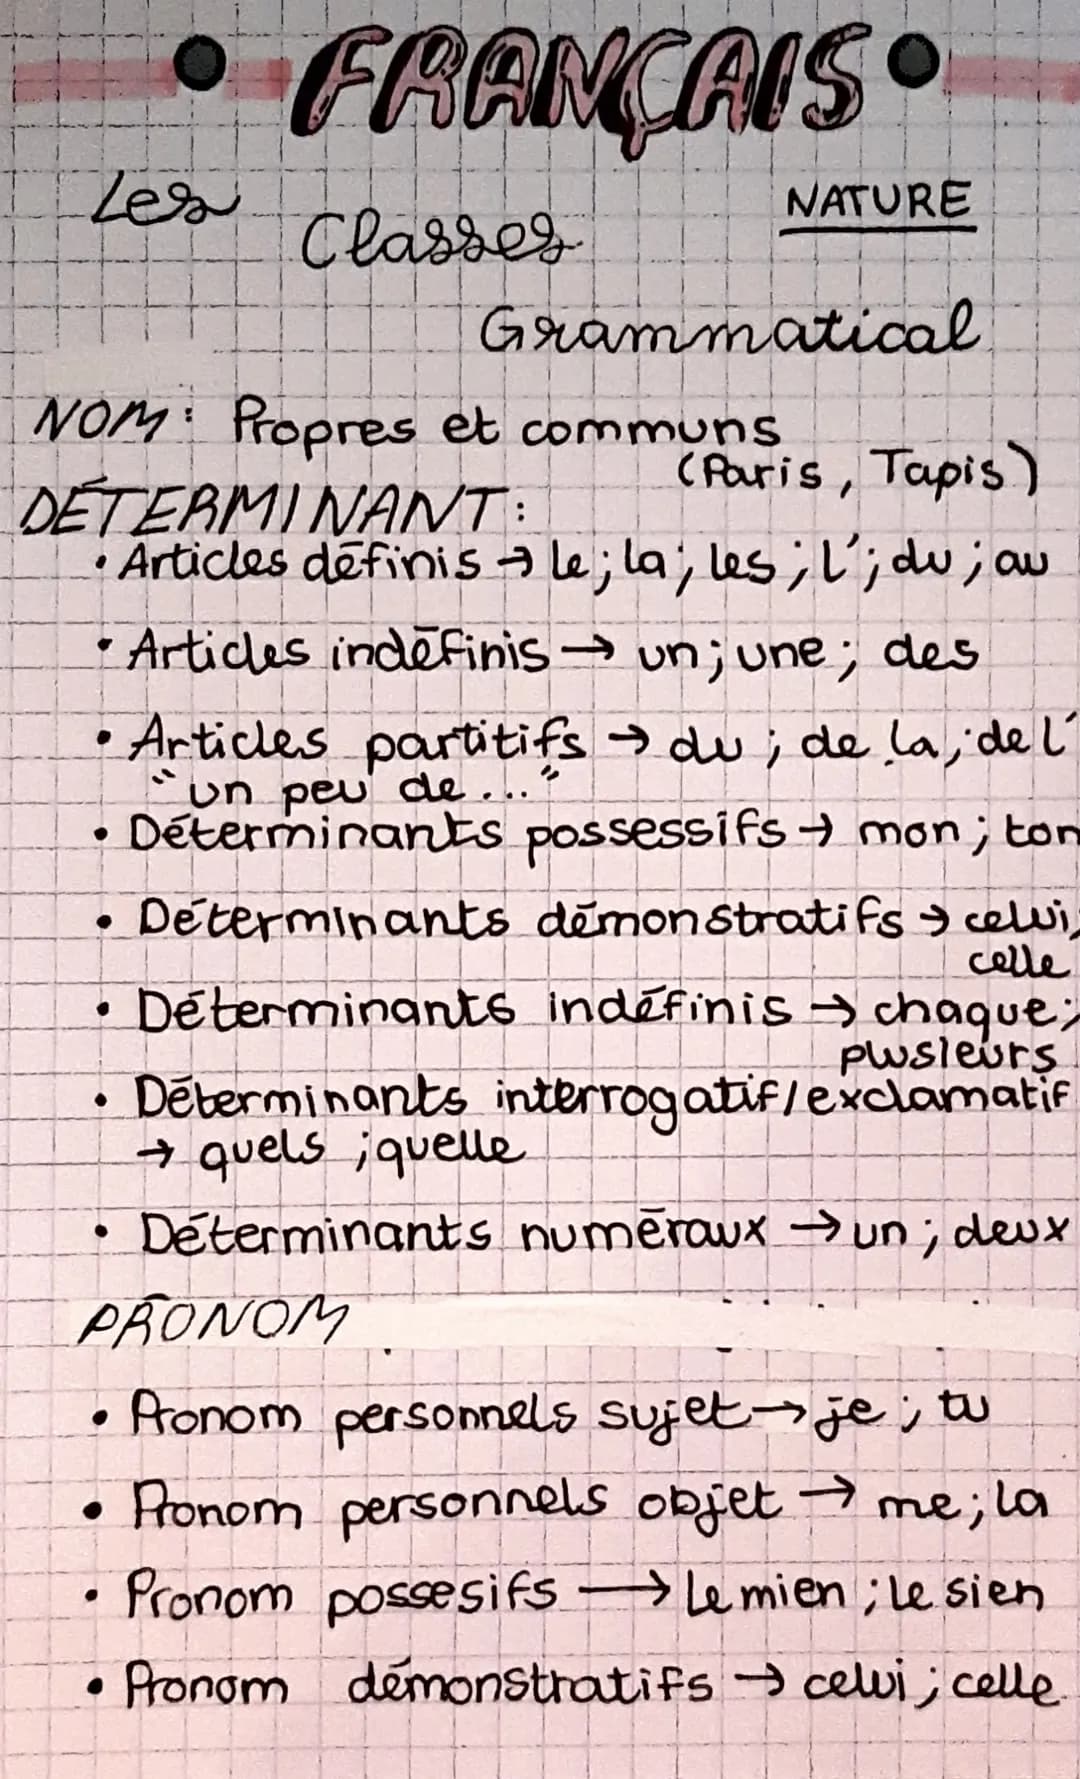 • FRANÇAIS •
Les Classes Grammatical
NATURE
NOM : Propres et communs
(Paris, Tapis)
DÉTERMINANT :
• Articles définis → le ; la ; les ; l' ; du ; au
• Articles indéfinis → un ; une ; des
• Articles partitifs → du ; de la ; de l'
"un peu de ..."
• Déterminants possessifs → mon ; ton
• Déterminants démonstratifs → celui,
celle
• Déterminants indéfinis → chaque ;
plusieurs
• Déterminants interrogatif/exclamatif
→ quels ; quelle
• Déterminants numéraux → un ; deux
PRONOM
• Pronom personnels sujet → je ; tu
• Pronom personnels objet → me ; la
• Pronom possesifs → le mien ; le sien
• Pronom démonstratifs → celui ; celle